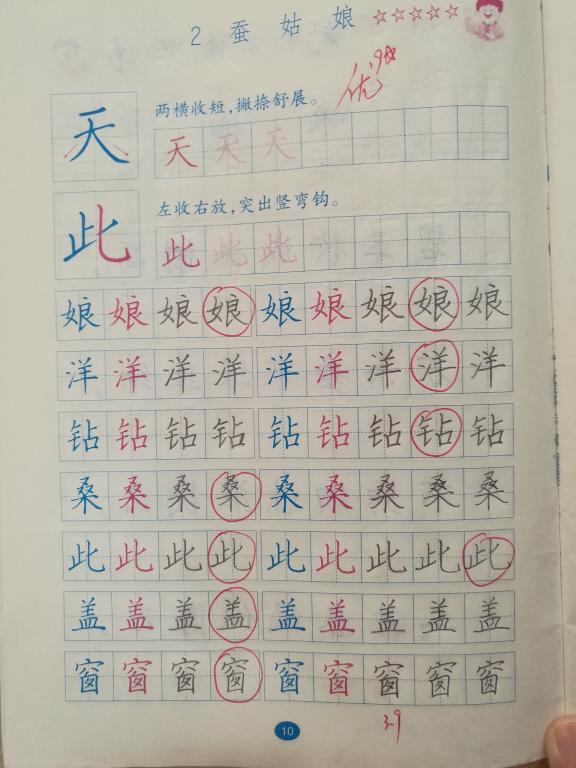 2 蚕姑娘 ☆☆☆☆☆
优
天 两横收短,撇捺舒展。
天 天 天
此 左收右放,突出竖弯钩。
此 此 此
娘 娘 娘 娘 娘 娘 娘 娘 娘
洋 洋 洋 洋 洋 洋 洋 洋 洋
钻 钻 钻 钻 钻 钻 钻 钻 钻
桑 桑 桑 桑 桑 桑 桑 桑 桑
此 此 此 此 此 此 此 此 此
盖 盖 盖 盖 盖 盖 盖 盖 盖
窗 窗 窗 窗 窗 窗 窗 窗 窗
10
3-9